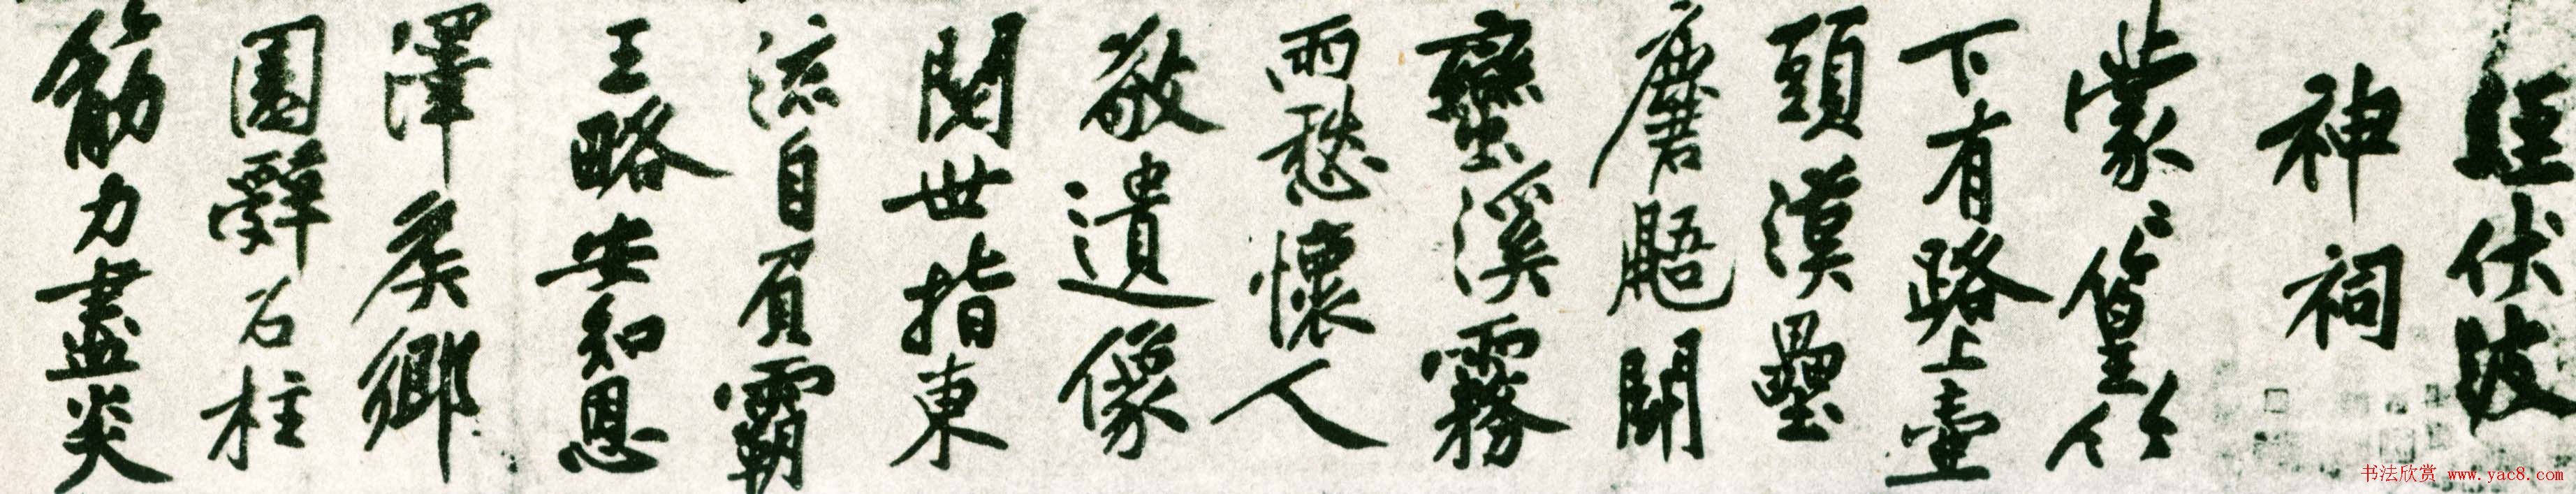 經伏波
神祠
蒙〻篁竹
下有路上壺
頭漢壘
麏鼯鬭
蠻溪霧
雨愁懷人
敬遺像
閱世指東
流自負霸
王略安知恩
澤侯鄉
園辭石柱
筋力盡炎
书法欣赏 www.yac8.com